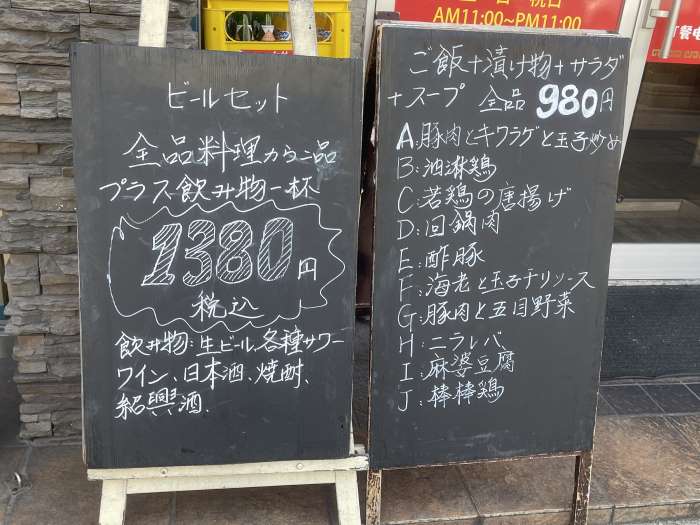 ビールセット
全品料理から二品
プラス飲み物一杯
1380円
税込
飲み物:生ビール、各種サワー
ワイン、日本酒、焼酎、
紹興酒.
AM11:00~PM11:00
ご飯+漬け物+サラダ
+スープ 全品 980円
A:豚肉とキワラゲと玉子炒め
B:油淋鶏
C:若鶏の唐揚げ
D:回鍋肉
E:酢豚
F:海老と玉子チリソース
G:豚肉と五目野菜
H:ニラレバ
I:麻婆豆腐
J:棒棒鶏